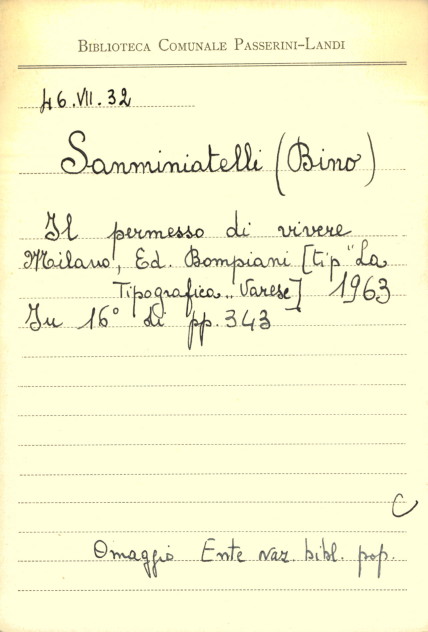 BIBLIOTECA COMUNALE PASSERINI-LANDI
46.VII.32
Sanminiatelli (Bino)
Il permesso di vivere
Milano, Ed. Bompiani [tip "La
Tipografica,, Varese] 1963
In 16° di pp. 343
C
Omaggio Ente naz. bibl. pop.